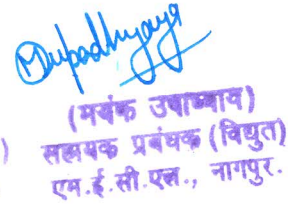 MUpadhyaya
(मयंक उपाध्याय)
) सहायक प्रबंधक (विद्युत)
एम.ई.सी.एल., नागपुर.